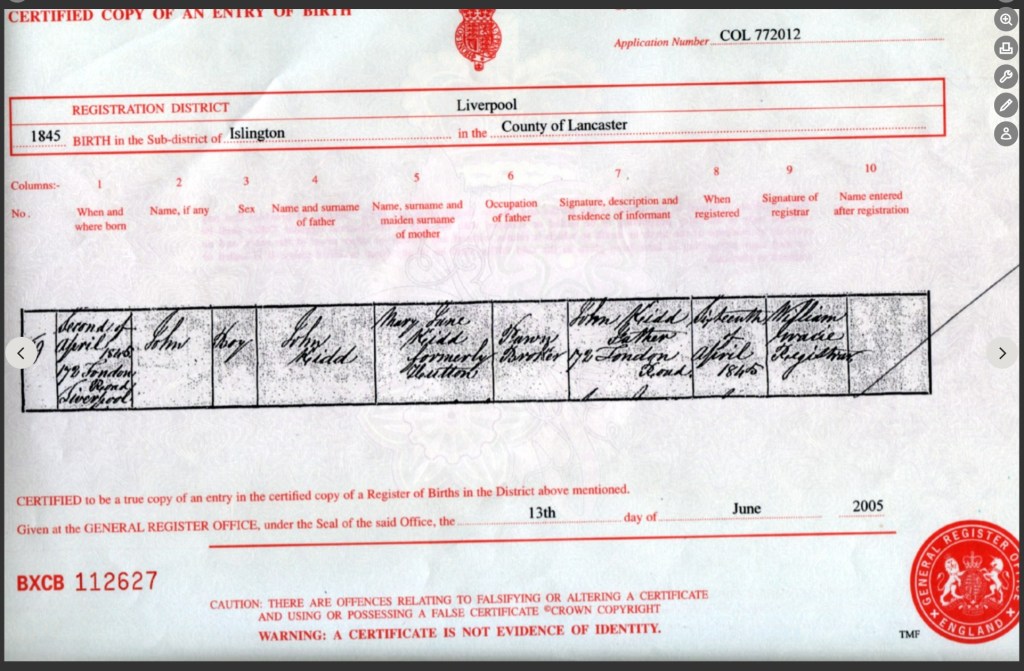 CERTIFIED COPY OF AN ENTRY OF BIRTH
Application Number COL 772012
REGISTRATION DISTRICT Liverpool
1845 BIRTH in the Sub-district of Islington in the County of Lancaster
Columns:- 1 2 3 4 5 6 7. 8 9 10
No. When and where born
Name, if any
Sex
Name and surname of father
Name, surname and maiden surname of mother
Occupation of father
Signature, description and residence of informant
When registered
Signature of registrar
Name entered after registration
Second of
April
1845
172 London
Road
Liverpool
John
Boy
John
Kidd
Mary Jane
Kidd
formerly
Pawn
Broker
John Kidd
Father
172 London
Road
Sixteenth
of
April
1845
William
Registrar
CERTIFIED to be a true copy of an entry in the certified copy of a Register of Births in the District above mentioned.
Given at the GENERAL REGISTER OFFICE, under the Seal of the said Office, the 13th day of June 2005
BXCB 112627
CAUTION: THERE ARE OFFENCES RELATING TO FALSIFYING OR ALTERING A CERTIFICATE
AND USING OR POSSESSING A FALSE CERTIFICATE ©CROWN COPYRIGHT
WARNING: A CERTIFICATE IS NOT EVIDENCE OF IDENTITY.
GENERAL REGISTER OFFICE
ENGLAND
TMF